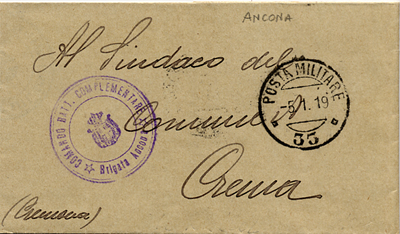 ANCONA
Al Sindaco del
Comune di
Crema
(Cremona)
POSTA MILITARE
-5.1.19
35
COMANDO BATT. COMPLEMENTARE
Brigata